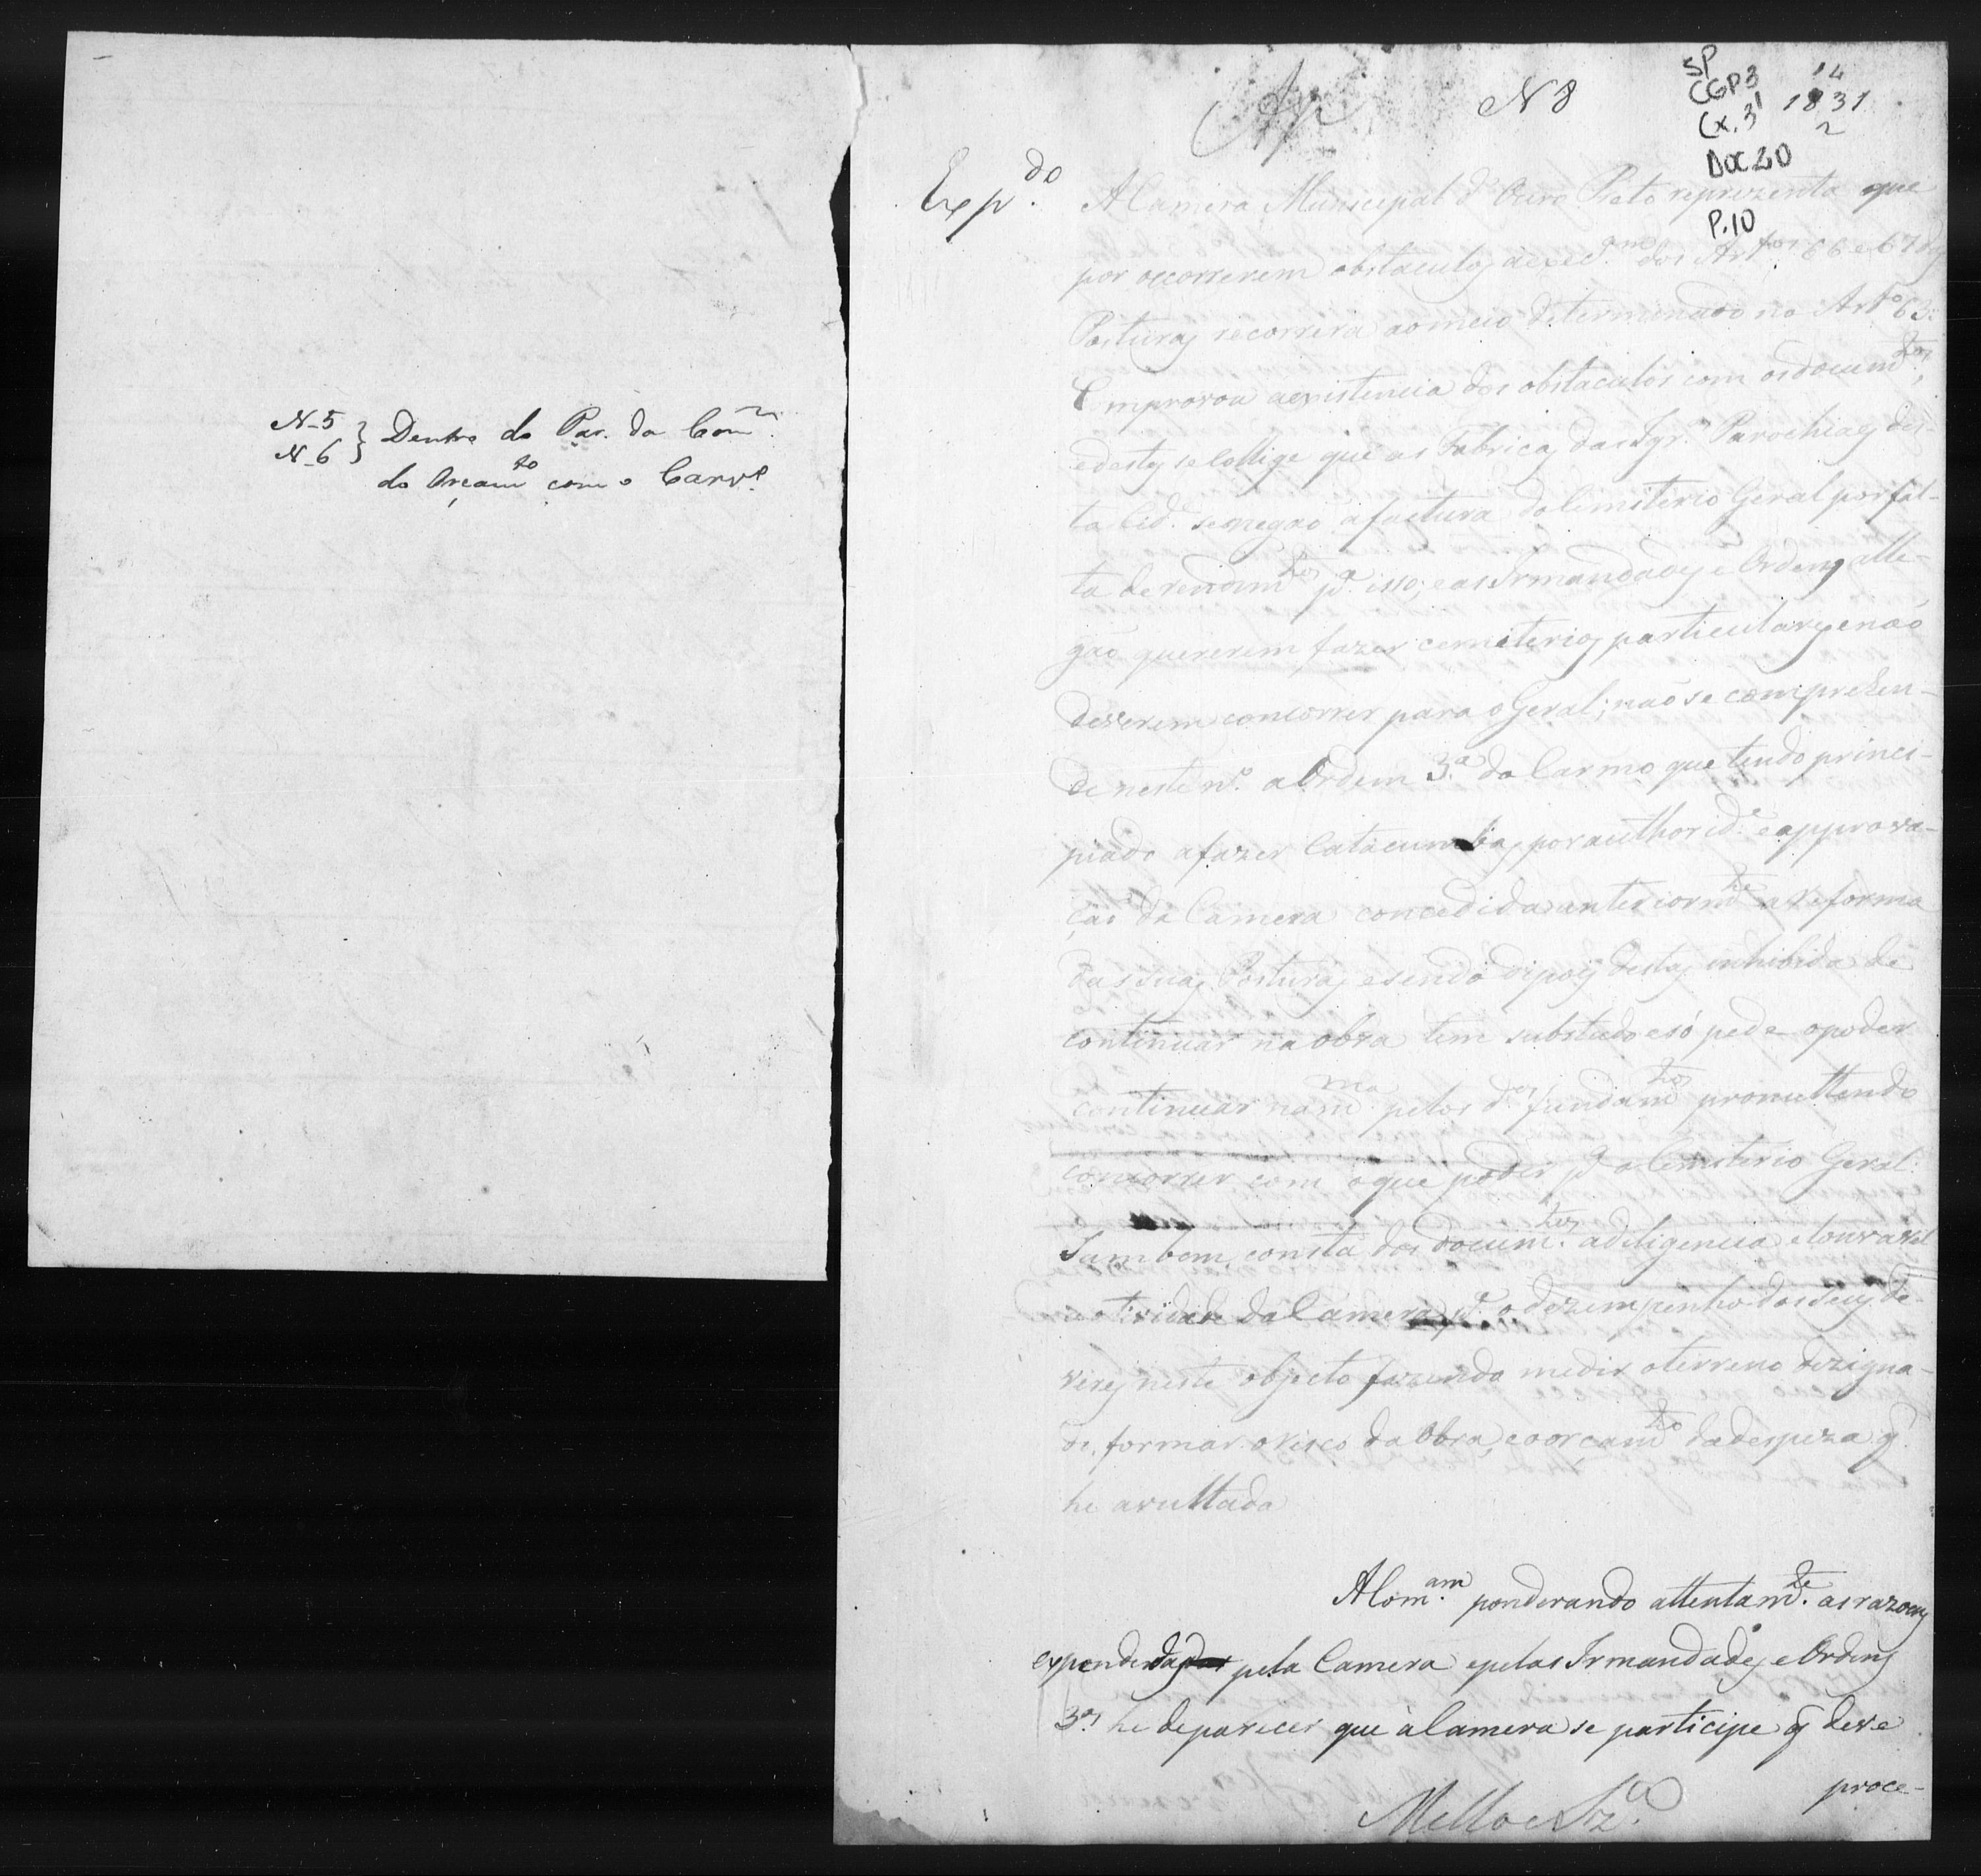 N-5
N-6 } Dentro do Par. da Com.
do Orçam.to com o Carv.o
Ap
N 8
SP
CGP3
Cx. 3
14
1831
2
DOC 20
P.10
Exp.do
A Camera Municipal d'Ouro Preto reprezenta que
por occorrerem obstaculos á exec.am dos Art.os 66 e 67 das
Posturas recorrera ao meio determinado no Art.o 63:
Comprovou a existencia dos obstaculos com os docum.tos,
e destes se collige que as Fabricas das Igr.as Parochiaes des-
ta Cid.e se negão á factura do Cemiterio Geral por fal-
ta de rendim.tos p.a isso; e as Irmandades e Ordens alle-
gão quererem fazer cemiterios particulares e não
deverem concorrer para o Geral; não se comprehen-
de neste n.o a Ordem 3.a do Carmo que tendo princi-
piado a fazer Catacumbas por authorid.e e approva-
ção da Camera concedida anteriorm.te a reforma
das suas Posturas, e sendo depois destas inhibida de
continuar na obra tem substado e só pede o poder
continuar na m.ma pelos d.os fundam.tos promettendo
concorrer com o que poder p.a o Cemiterio Geral.
Tambem consta dos docum.tos a diligencia e louvavel
actividade da Camera p.a o dezempenho dos seus de-
veres neste objecto fazendo medir o terreno dezigna-
do, formar o risco da Obra, e o orçam.to da despeza q
he avultada
A Com.am ponderando attentam.te as razoens
expendidas pela Camera e pelas Irmandades e Ordens
3.as he de parecer que á Camera se participe q deve
proce-
Mello e Sz.a